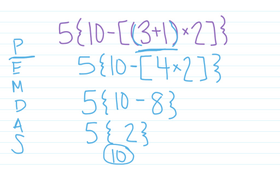 P
E
M
D
A
S
5{10-[(3+1)×2]}
5{10-[4×2]}
5{10-8}
5{2}
10